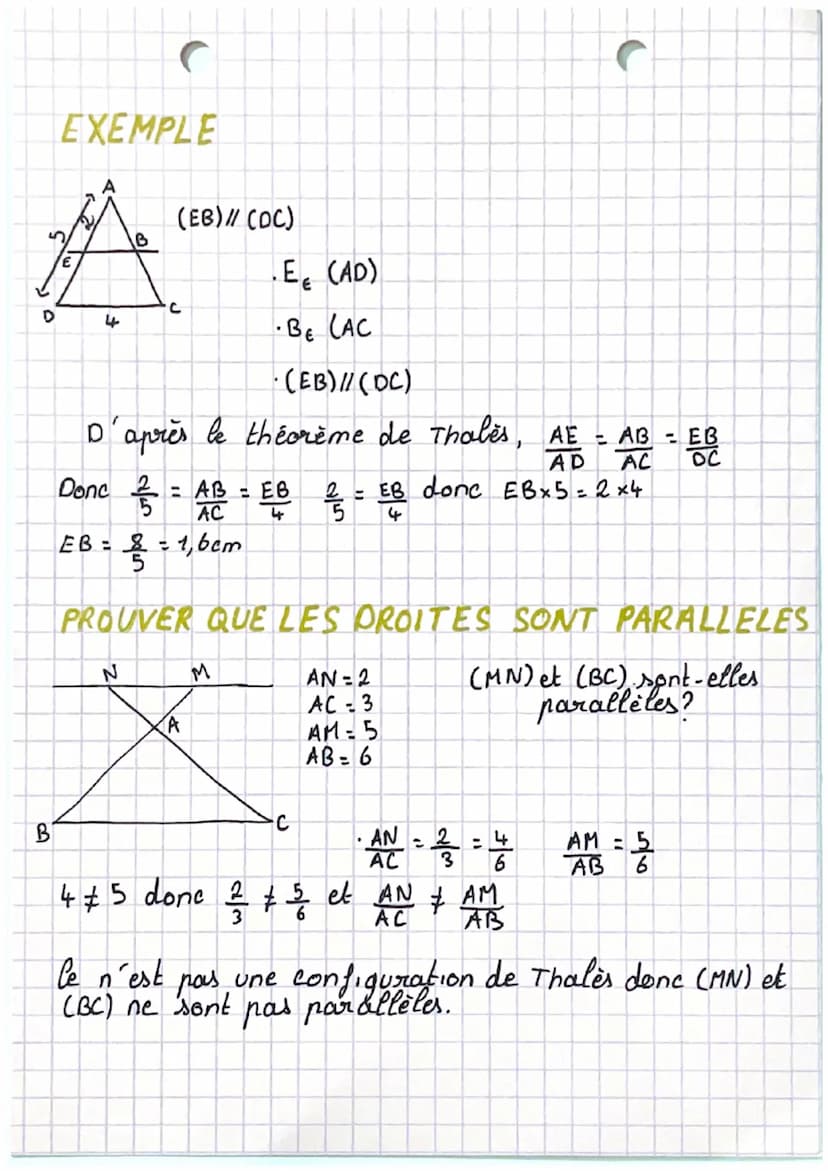 EXEMPLE
A
5
2
B
E
D
4
C
(EB)//(DC)
. E ∈ (AD)
. B ∈ (AC
. (EB)//(DC)
D'après le théorème de Thalès, AE/AD = AB/AC = EB/DC
Donc 2/5 = AB/AC = EB/4 2/5 = EB/4 donc EB×5 = 2×4
EB = 8/5 = 1,6cm
PROUVER QUE LES DROITES SONT PARALLELES
N
M
A
B
C
AN = 2
AC = 3
AM = 5
AB = 6
(MN) et (BC) sont-elles
parallèles?
. AN/AC = 2/3 = 4/6 AM/AB = 5/6
4 ≠ 5 donc 2/3 ≠ 5/6 et AN/AC ≠ AM/AB
Ce n'est pas une configuration de Thalès donc (MN) et
(BC) ne sont pas parallèles.